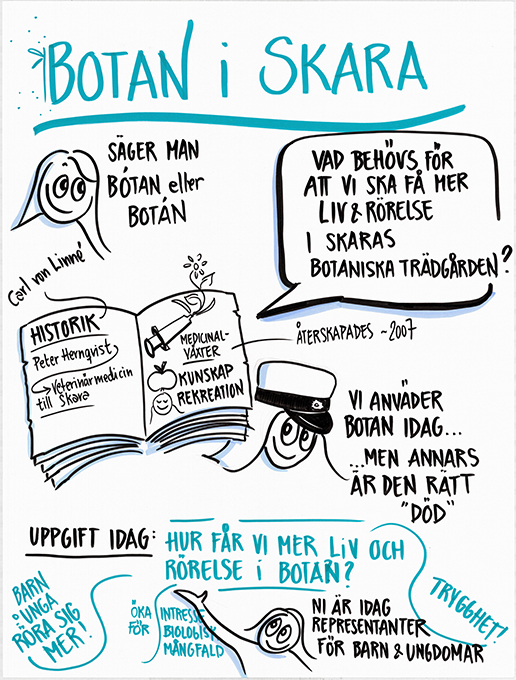 BOTAN i SKARA
SÄGER MAN
BÓTAN eller
BOTÁN
VAD BEHÖVS FÖR
ATT VI SKA FÅ MER
LIV & RÖRELSE
I SKARAS
BOTANISKA TRÄDGÅRDEN?
Carl von Linné
HISTORIK
Peter Hernqvist
Veterinärmedicin
till Skara
MEDICINAL-
VÄXTER
KUNSKAP
REKREATION
ÅTERSKAPADES ~2007
VI ANVÄDER
BOTAN IDAG...
...MEN ANNARS
ÄR DEN RÄTT
"DÖD"
UPPGIFT IDAG:
HUR FÅR VI MER LIV OCH
RÖRELSE i BOTAN?
BARN
& UNGA
RÖRA SIG
MER!
ÖKA
FÖR
INTRESSE
BIOLOGISK
MÅNGFALD
NI ÄR IDAG
REPRESENTANTER
FÖR BARN & UNGDOMAR
TRYGGHET!